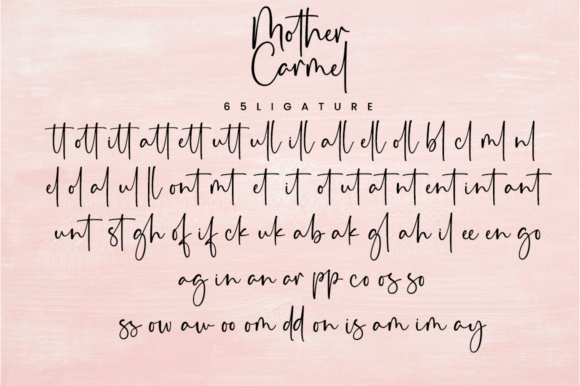 Mother
Carmel
65LIGATURE
tt ott itt att ett utt ull ill all ell oll bl cl ml nl
el ol al ul ll ont mt et it ot ut at nt ent int ant
unt st gh of if ck uk ab ak gl ah il ee en go
ag in an ar pp co os so
ss ow aw oo om dd on is am im ay